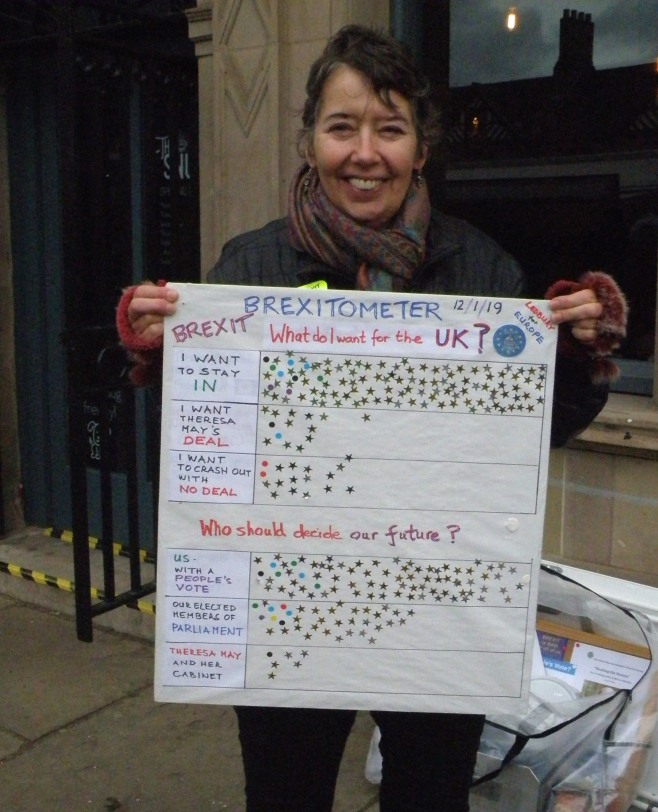 BREXITOMETER 12/1/19
LEDBURY
for
EUROPE
BREXIT What do I want for the UK?
I WANT
TO STAY
IN
I WANT
THERESA
MAY'S
DEAL
I WANT
TO CRASH OUT
WITH
NO DEAL
Who should decide our future?
US -
WITH A
PEOPLE'S
VOTE
OUR ELECTED
MEMBERS OF
PARLIAMENT
THERESA MAY
AND HER
CABINET